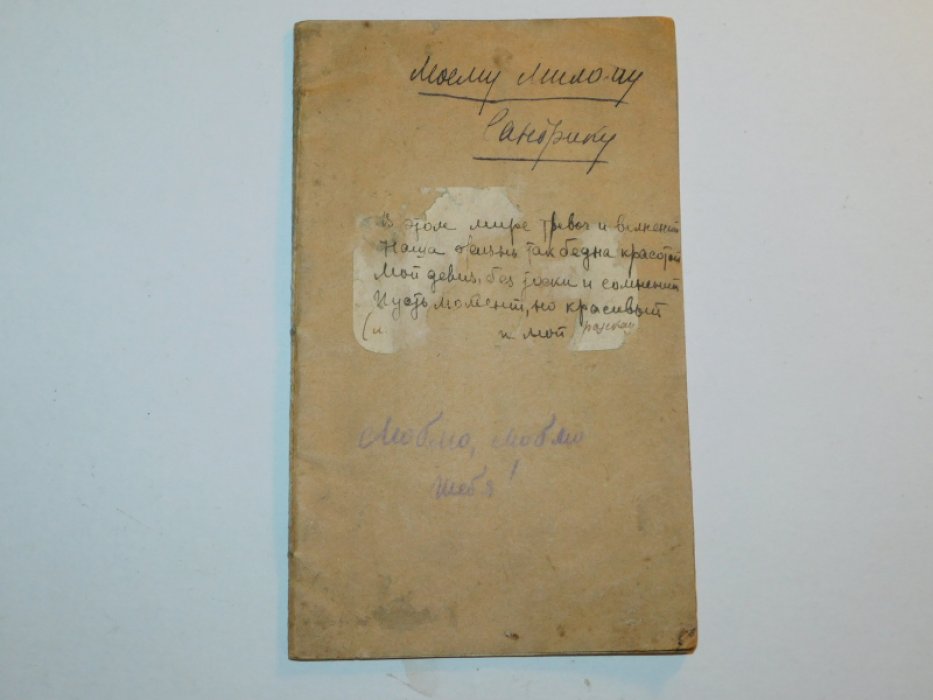 Моему милому
Сандрику
В этом мире тревог и волнений
Наша жизнь так бедна красотой
Мой девиз, без тоски и сомнений
Пусть момент, но красивый
и мой
Люблю, люблю
тебя!